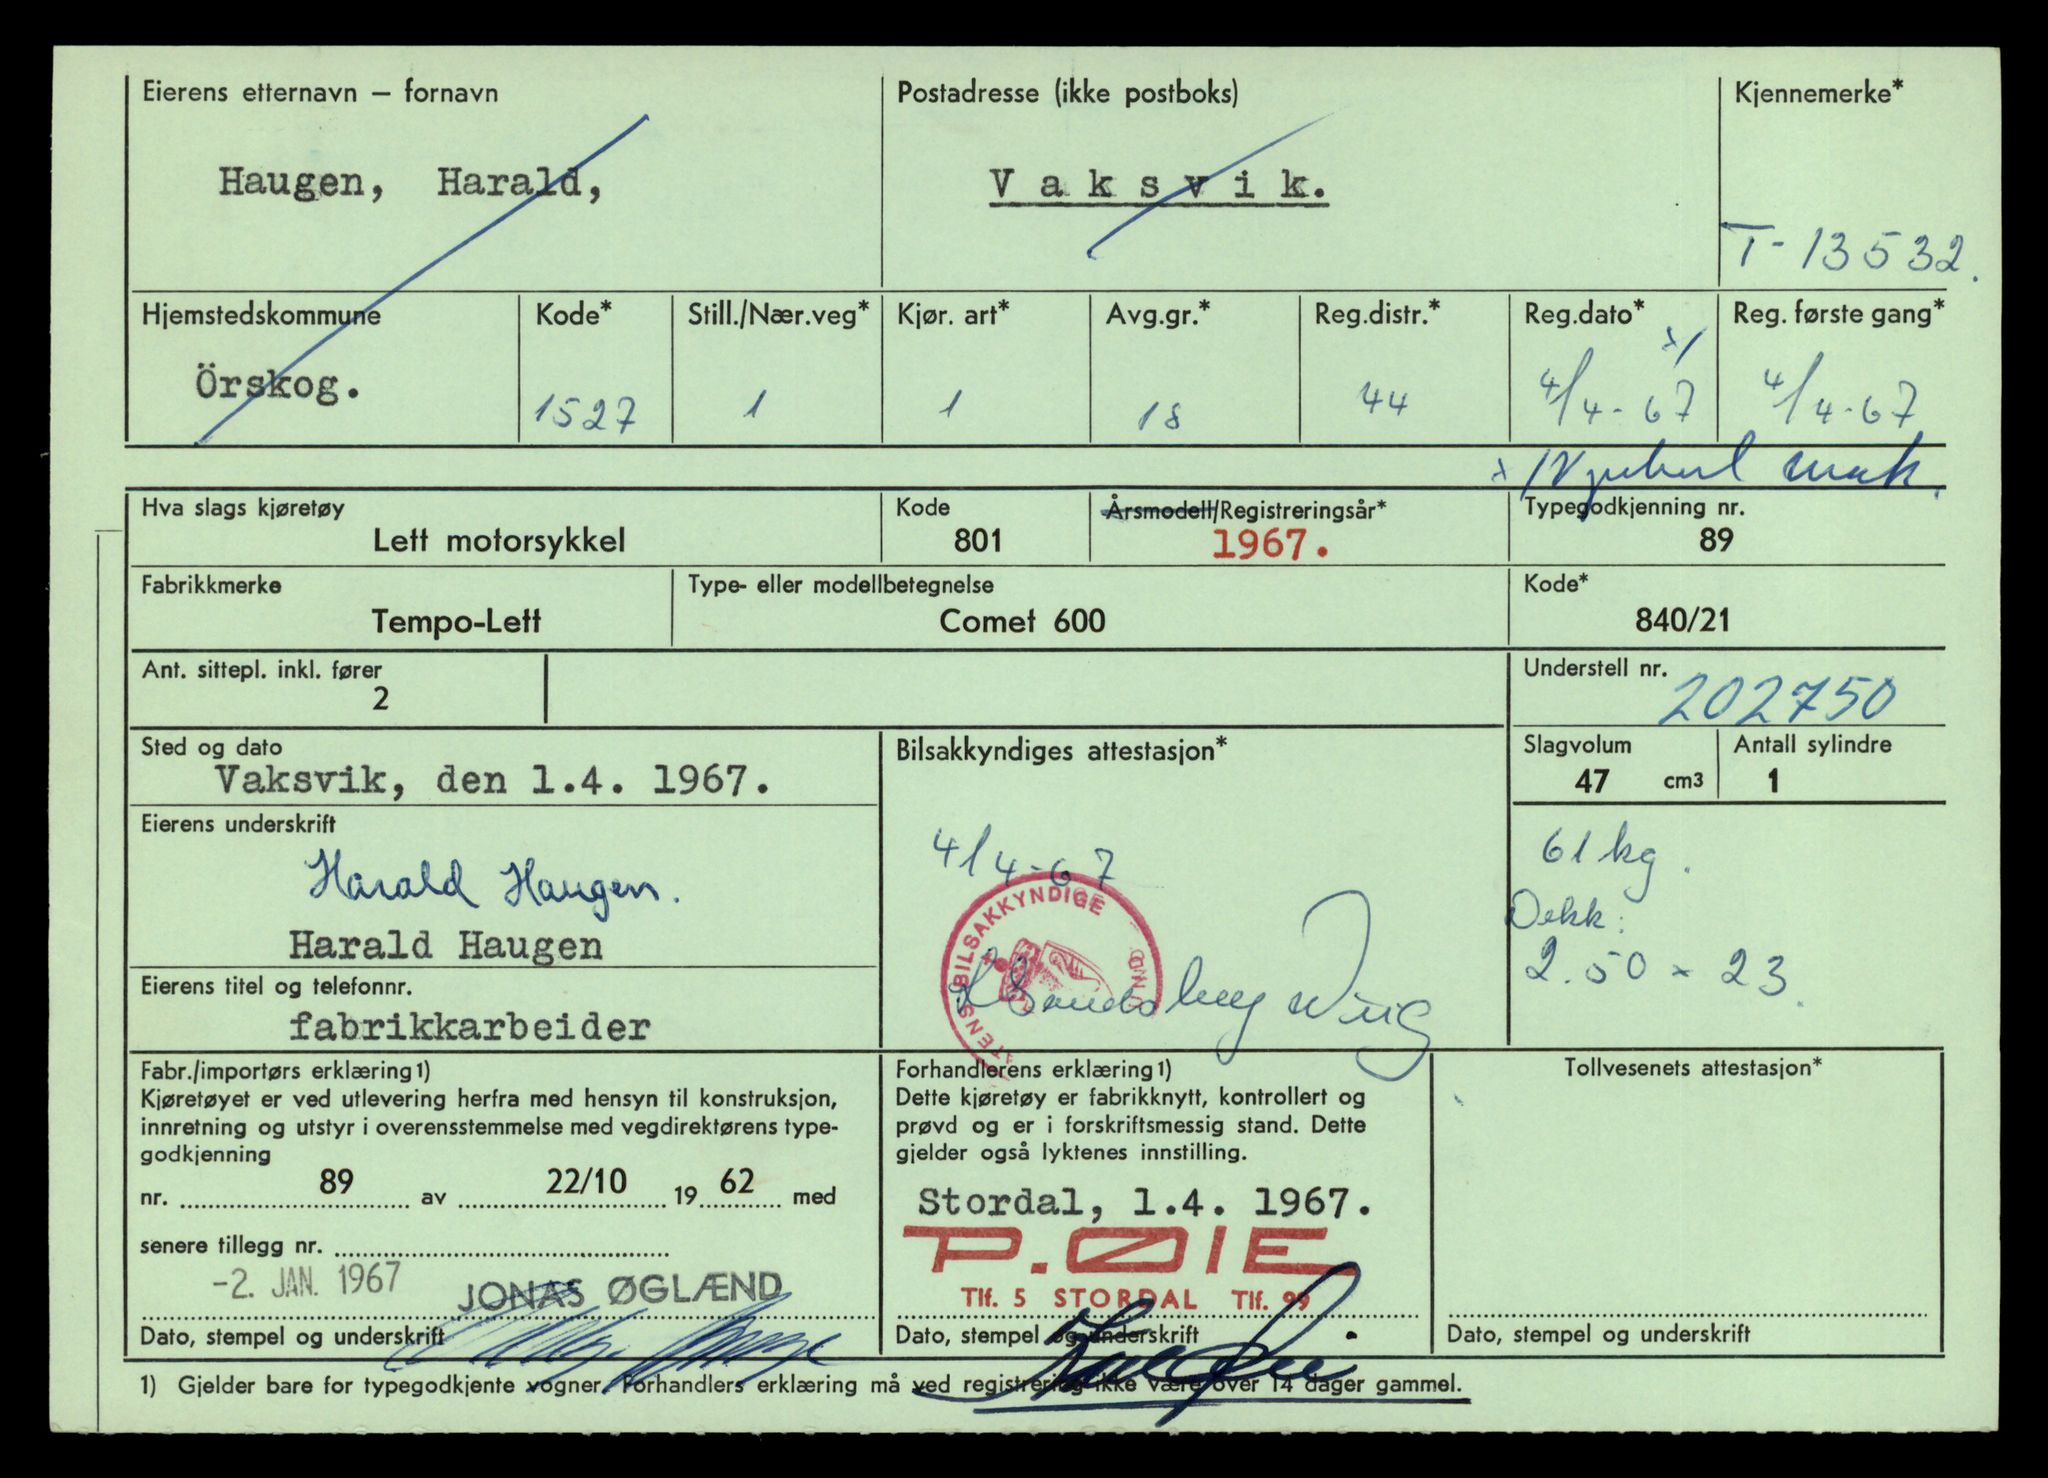 Eierens etternavn — fornavn
Haugen, Harald,
Postadresse (ikke postboks)
Vaksvik.
Kjennemerke*
T-13532.
Hjemstedskommune
Örskog.
Kode*
1527
Still./Nær.veg*
1
Kjør. art*
1
Avg.gr.*
18
Reg.distr.*
44
Reg.dato* x/
4/4-67
Reg. første gang*
4/4-67
Hva slags kjøretøy
Lett motorsykkel
Kode
801
Årsmodell/Registreringsår*
1967.
Typegodkjenning nr.
89
Fabrikkmerke
Tempo-Lett
Type- eller modellbetegnelse
Comet 600
Kode*
840/21
Ant. sittepl. inkl. fører
2
Understell nr.
202750
Sted og dato
Vaksvik, den 1.4. 1967.
Bilsakkyndiges attestasjon*
Slagvolum
47 cm3
Antall sylindre
1
Eierens underskrift
Harald Haugen.
Harald Haugen
4/4-67
BILSAKKYNDIGE
61 kg.
Dekk:
2.50 x 23.
Eierens titel og telefonnr.
fabrikkarbeider
Fabr./importørs erklæring1)
Kjøretøyet er ved utlevering herfra med hensyn til konstruksjon,
innretning og utstyr i overensstemmelse med vegdirektørens type-
godkjenning
nr. 89 av 22/10 1962 med
senere tillegg nr.
-2. JAN. 1967 JONAS ØGLÆND
Dato, stempel og underskrift
Forhandlerens erklæring1)
Dette kjøretøy er fabrikknytt, kontrollert og
prøvd og er i forskriftsmessig stand. Dette
gjelder også lyktenes innstilling.
Stordal, 1.4. 1967.
P. ØIE
Tlf. 5 STORDAL Tlf. 99
Dato, stempel og underskrift
Tollvesenets attestasjon*
Dato, stempel og underskrift
1) Gjelder bare for typegodkjente vogner. Forhandlers erklæring må ved registrering ikke være over 14 dager gammel.